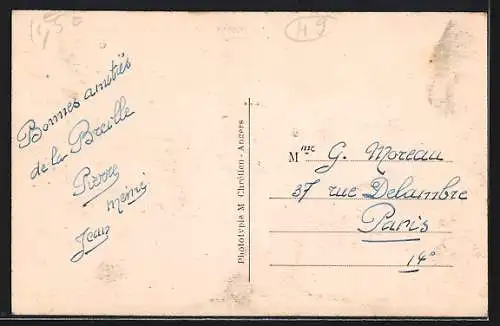 1,50
49
Bonnes amitiés
de la Breille
Pierre
mémé
Jean
Phototypie M Chrétien - Angers
Mme G. Moreau
37 rue Delambre
Paris
14°